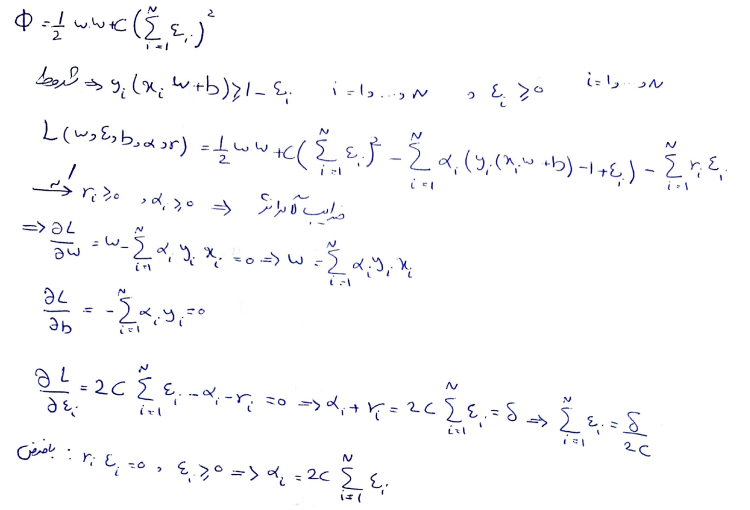 Φ = 1/2 w.w + C (∑_{i=1}^{N} ε_i)^2
شروط ⇒ y_i (x_i w + b) ≥ 1 - ε_i   i = 1, ..., N   , ε_i ≥ 0   i = 1, ..., N
L(w, ε, b, α, r) = 1/2 w w + C (∑_{i=1}^{N} ε_i)^2 - ∑_{i=1}^{N} α_i (y_i (x_i w + b) - 1 + ε_i) - ∑_{i=1}^{N} r_i ε_i
r_i ≥ 0 , α_i ≥ 0 ⇒ ضرایب لاگرانژ
⇒ ∂L/∂w = w - ∑_{i=1}^{N} α_i y_i x_i = 0 ⇒ w = ∑_{i=1}^{N} α_i y_i x_i
∂L/∂b = - ∑_{i=1}^{N} α_i y_i = 0
∂L/∂ε_i = 2C ∑_{i=1}^{N} ε_i - α_i - r_i = 0 ⇒ α_i + r_i = 2C ∑_{i=1}^{N} ε_i = δ ⇒ ∑_{i=1}^{N} ε_i = δ/2C
بافرض : r_i ε_i = 0 , ε_i ≥ 0 ⇒ α_i = 2C ∑_{i=1}^{N} ε_i